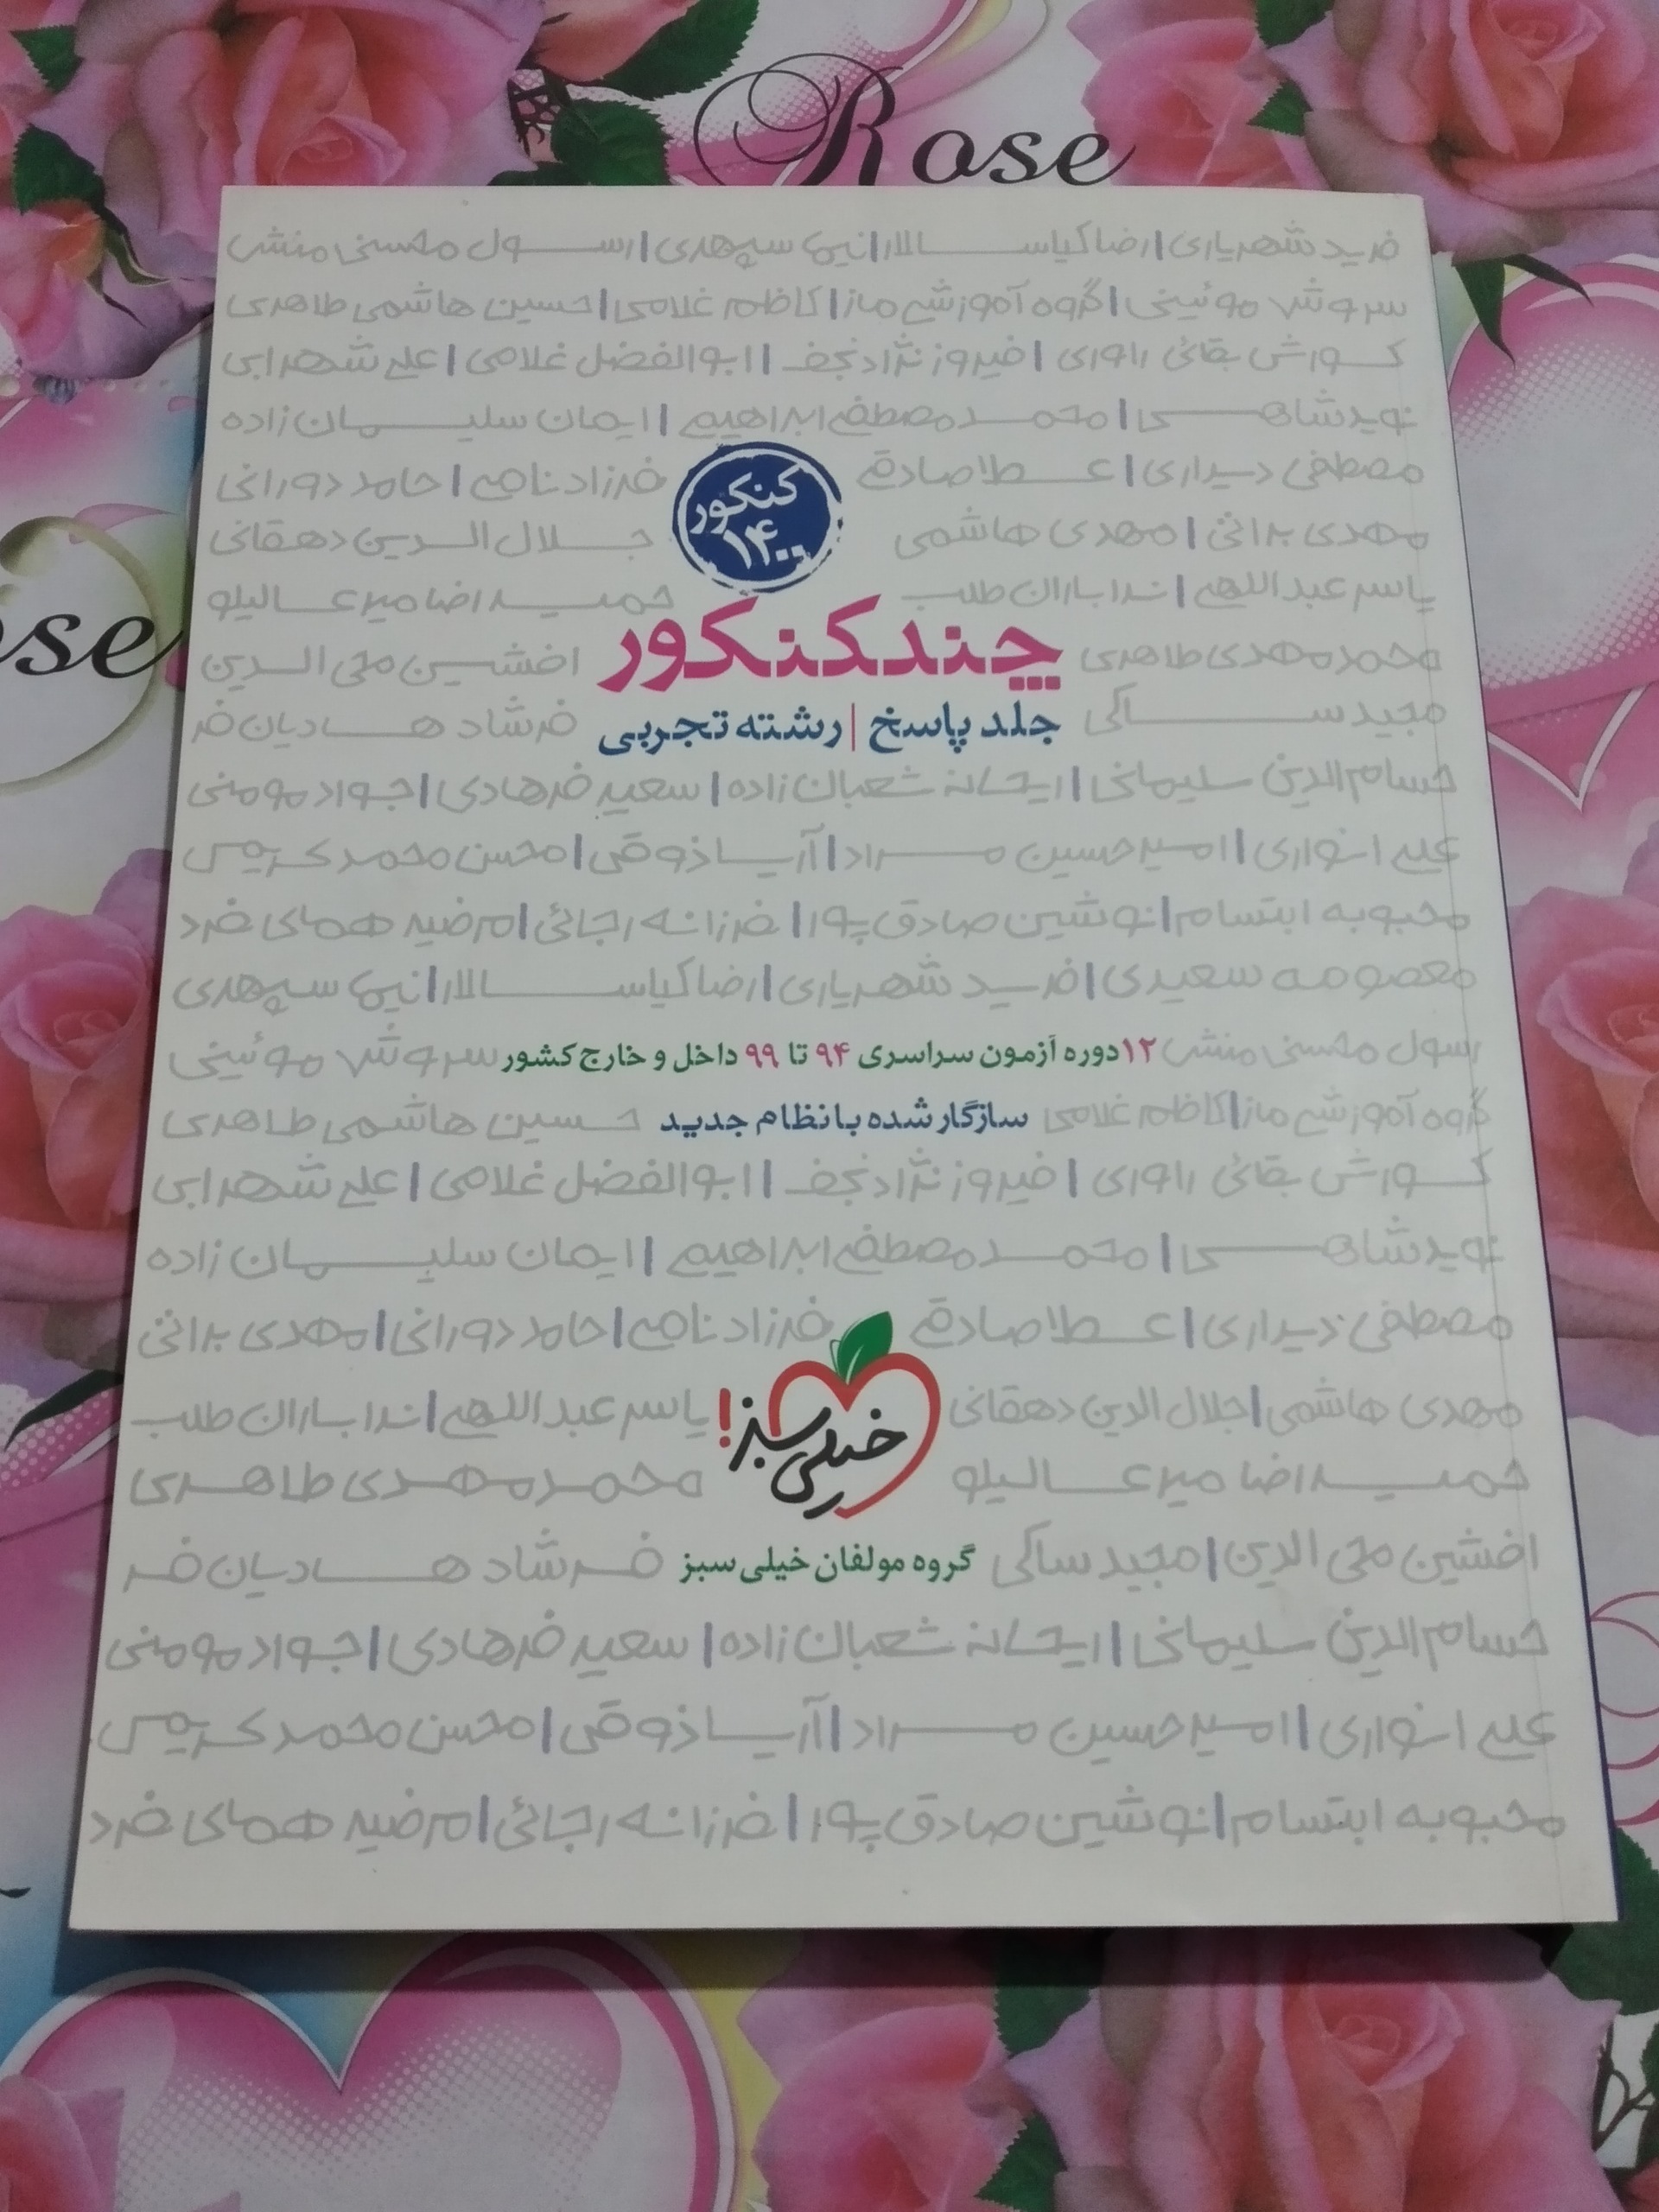 Rose
فرید شهریاری | رضا کیاسالار | نیما سپهری | رسول محسنی منش
سروش موئینی | گروه آموزشی ماز | کاظم غلامی | حسین هاشمی طاهری
کورش بقائی راوری | فیروز نژادنجف | ابوالفضل غلامی | علی شهرابی
نوید شاهی | محمدمصطفی ابراهیمی | ایمان سلیمان زاده
مصطفی دیداری | عطا صادقی
فرزاد نامی | حامد دورانی
کنکور
۱۴۰۰
مهدی براتی | مهدی هاشمی
جلال الدین دهقانی
یاسر عبداللهی | ندا باران طلب
حمیدرضا میرعالیلو
چند کنکور
محمدمهدی طاهری
افشین محی الدین
مجید ساکی
جلد پاسخ | رشته تجربی
فرشاد هادیان فر
حسام الدین سلیمانی | ریحانه شعبان زاده | سعید فرهادی | جواد مومنی
علی انواری | امیرحسین مراد | آریا ذوقی | محسن محمدکریمی
محبوبه ابتسام | نوشین صادق پور | فرزانه رجائی | مرضیه همای فرد
معصومه سعیدی | فرید شهریاری | رضا کیاسالار | نیما سپهری
رسول محسنی منش
۱۲ دوره آزمون سراسری ۹۴ تا ۹۹ داخل و خارج کشور
سروش موئینی
گروه آموزشی ماز | کاظم غلامی
سازگار شده با نظام جدید
حسین هاشمی طاهری
کورش بقائی راوری | فیروز نژادنجف | ابوالفضل غلامی | علی شهرابی
نوید شاهی | محمدمصطفی ابراهیمی | ایمان سلیمان زاده
مصطفی دیداری | عطا صادقی
فرزاد نامی | حامد دورانی | مهدی براتی
مهدی هاشمی | جلال الدین دهقانی
یاسر عبداللهی | ندا باران طلب
خیلی سبز!
حمیدرضا میرعالیلو
محمدمهدی طاهری
افشین محی الدین | مجید ساکی
گروه مولفان خیلی سبز
فرشاد هادیان فر
حسام الدین سلیمانی | ریحانه شعبان زاده | سعید فرهادی | جواد مومنی
علی انواری | امیرحسین مراد | آریا ذوقی | محسن محمدکریمی
محبوبه ابتسام | نوشین صادق پور | فرزانه رجائی | مرضیه همای فرد